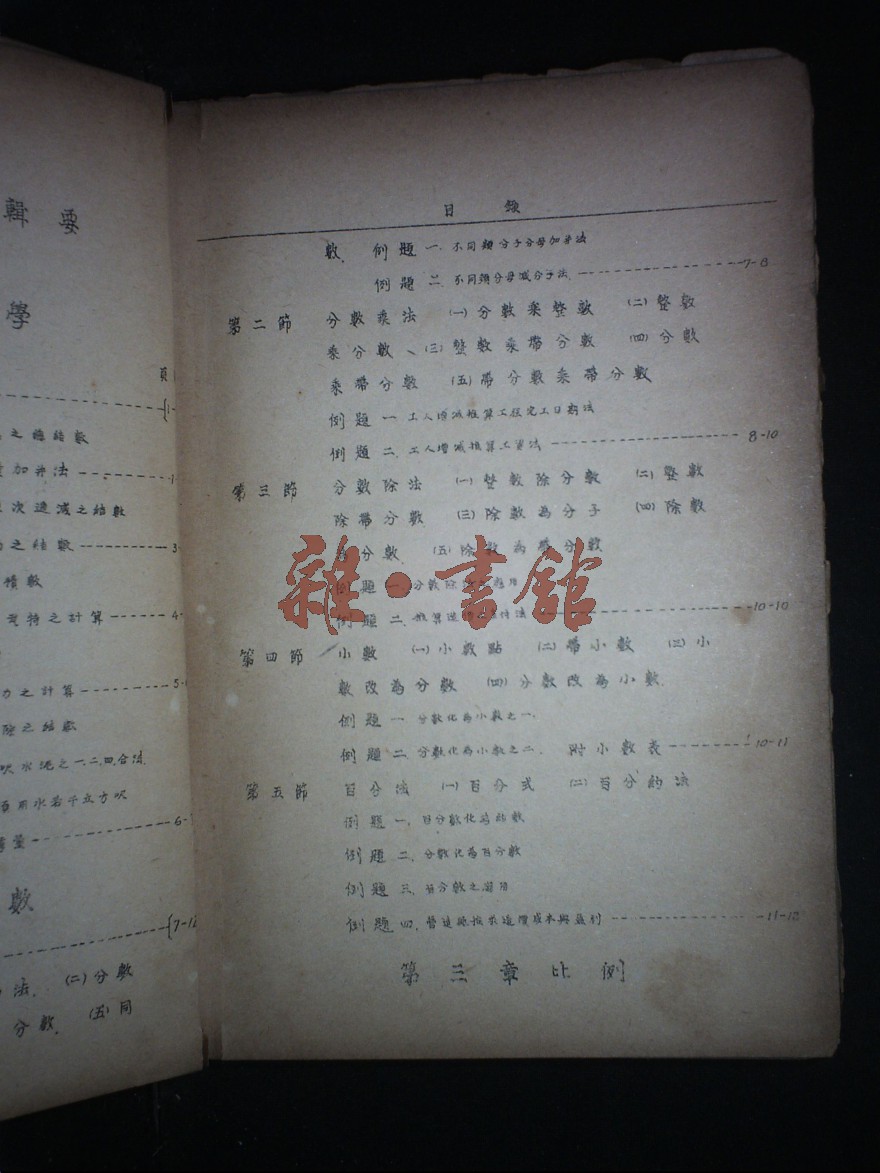 目 錄
數. 例題一. 不同類分子分母加算法
例題二. 不同類分母減分子法.----7-8
第二節 分數乘法 (一)分數乘整數 (二)整數
乘分數、(三)整數乘帶分數 (四)分數
乘帶分數 (五)帶分數乘帶分數
例題一 工人增減推算工程完工日期法
例題二. 工人增減推算工資法----8-10
第三節 分數除法 (一)整數除分數 (二)整數
除帶分數 (三)除數為分子 (四)除數
為分數. (五)除數為帶分數
例題一 分數除法
例題二.----10-10
第四節 小數 (一)小數點 (二)帶小數 (三)小
數改為分數 (四)分數改為小數.
例題一 分數化為小數之一.
例題二. 分數化為小數之二. 附小數表----10-11
第五節 百分法 (一)百分式 (二)百分約法
例題一. 百分數化為結數
例題二. 分數化為百分數
例題三. 百分數之應用
例題四. 營造廠推求造價成本與盈利----11-12
第三章比例
雜·書館
輯要
學
頁
1-
之總結數
加算法----1
次遞減之結數
之結數----3-
積數
之計算----4-
力之計算----5-
除之結數
吹水泥之一.二.四.合法.
用水若干立方呎
量----6-
數
7-12
法. (二)分數
分數. (五)同